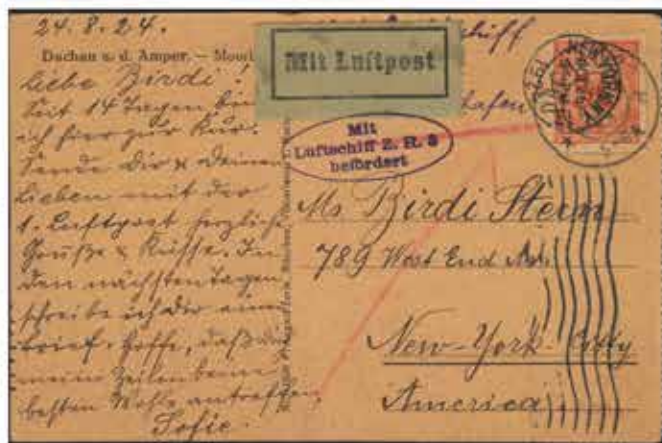 24.8.24.
Dachau a. d. Amper. – Moor
Liebe Birdi!
Seit 14 Tagen bin
ich hier zur Kur.
Sende Dir & Deinen
Lieben mit der
1. Luftpost herzliche
Grüße & Küsse. In
den nächsten Tagen
schreibe ich Dir einen
Brief. Hoffe, daß die
meine Zeilen beim
besten Wohle antreffen
Sofie.
schiff
Mit Luftpost
hafen
Mit
Luftschiff Z. R. 3
befördert
Ms Birdi Stern
789 West End Ave
New-York-Citty
America